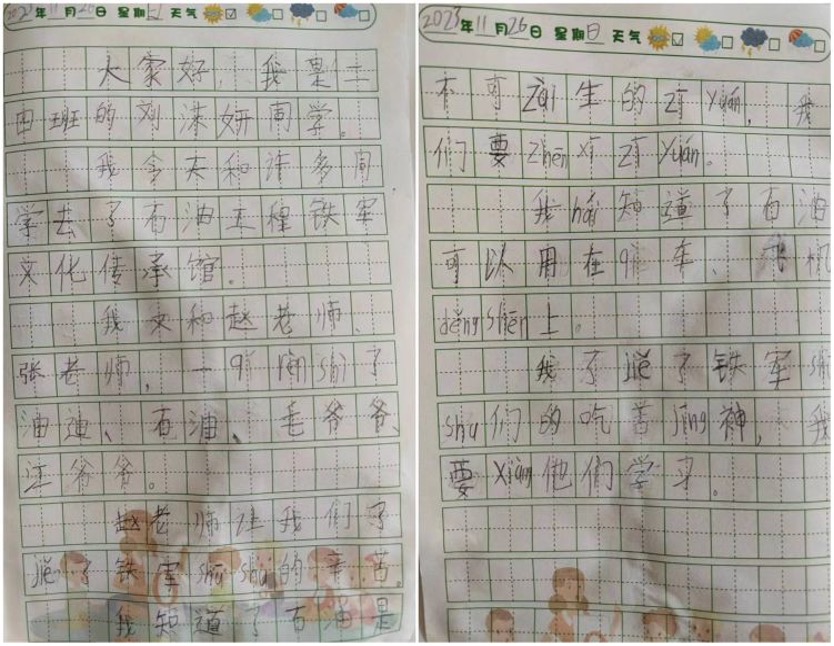 年11月26日 星期日 天气
大家好，我是一
四班的刘 妍同学。
我今天和许多同
学去了石油工程铁军
文化传承馆。
我又和赵老师、
张老师，一qǐ rèn shi了
油迪、石油、毛爷爷、
江爷爷。
赵老师让我们了
jiě了铁军shū shu的辛苦。
我知道了石油是
2023年11月26日 星期日 天气
不可zài生的zī yuán，我
们要zhēn xī zī yuán。
我hái知道了石油
可以用在qì车、飞机
děng shēn上。
我了jiě了铁军shū
shu们的吃苦jīng神，我
要xiàng他们学习。